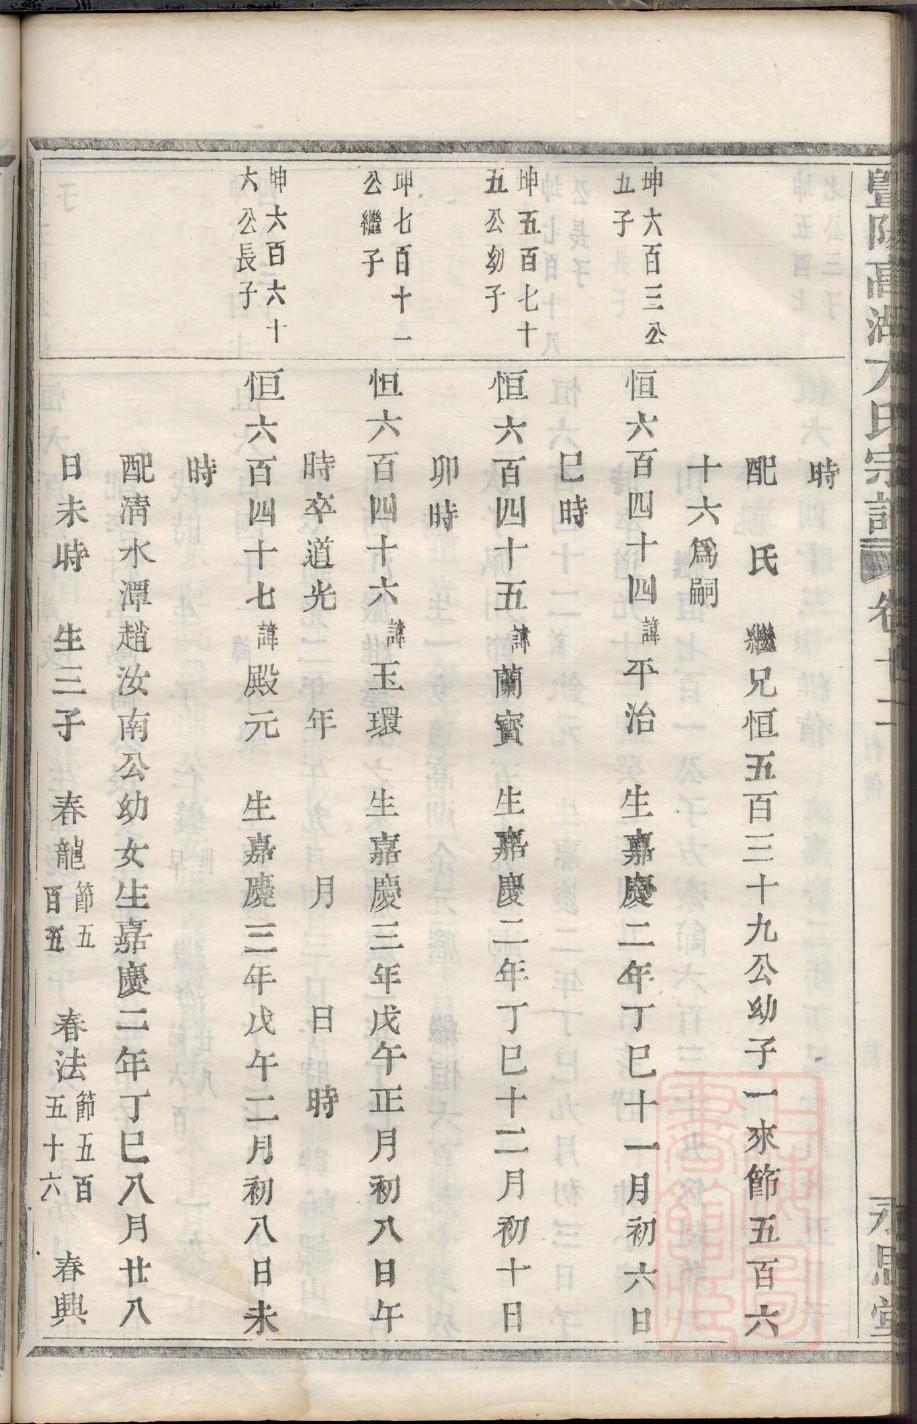 暨陽高湖方氏宗譜 卷廿二 永思堂
時
配 氏 繼兄恒五百三十九公幼子一來節五百六
十六爲嗣
坤六百三公
五子
恒六百四十四諱平治 生嘉慶二年丁巳十一月初六日
巳時
坤五百七十
五公幼子
恒六百四十五諱蘭寳 生嘉慶二年丁巳十二月初十日
卯時
坤七百十一
公繼子
恒六百四十六諱玉環 生嘉慶三年戊午正月初八日午
時卒道光 年 月 日 時
坤六百六十
六公長子
恒六百四十七諱殿元 生嘉慶三年戊午二月初八日未
時
配清水潭趙汝南公幼女生嘉慶二年丁巳八月廿八
日未時 生三子 春龍節五百五 春法節五百五十六 春興